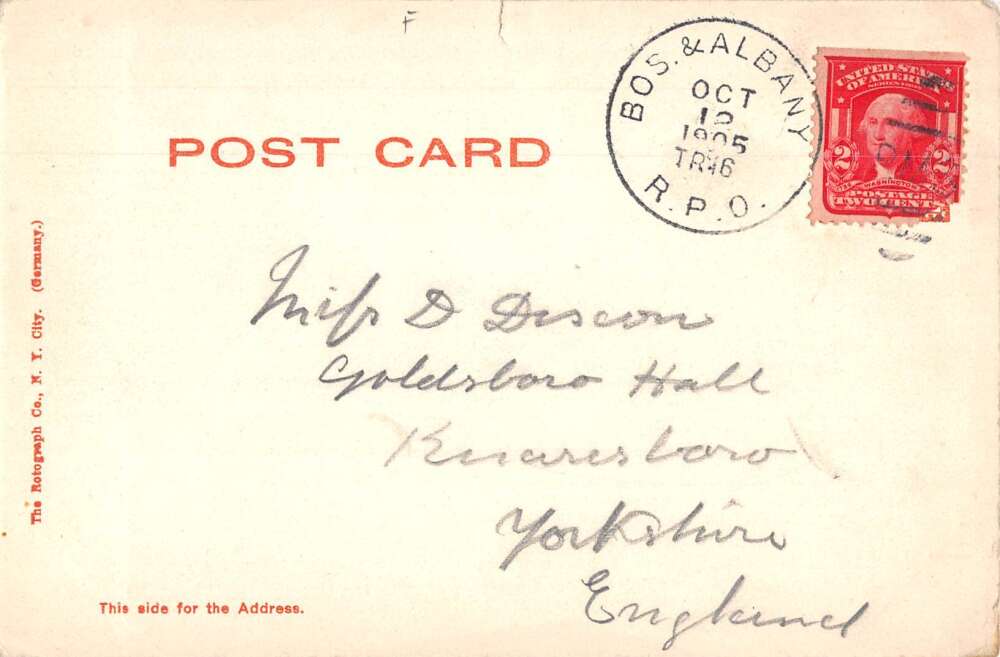 F
BOS. & ALBANY
OCT
12
1905
TR 16
R.P.O.
UNITED STATES
OF AMERICA
2 2
WASHINGTON
POSTAGE
TWO CENTS
POST CARD
Miss D Discon
Goldsboro Hall
Knaresboro
Yorkshire
England
The Rotograph Co., N. Y. City. (Germany.)
This side for the Address.